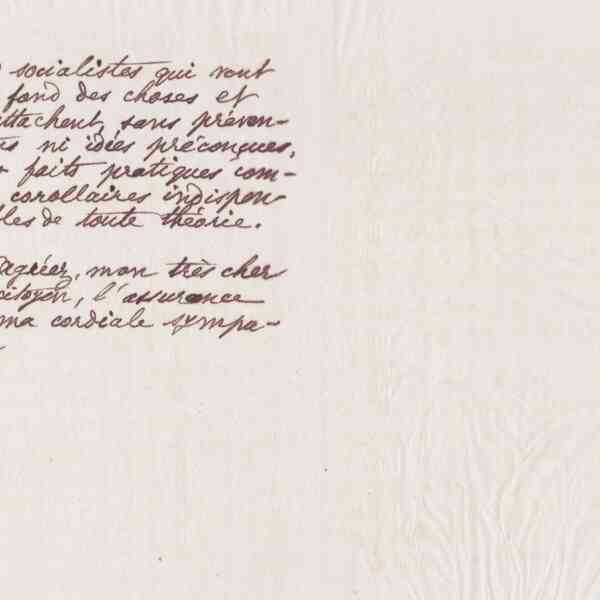 socialistes qui vont
fond des choses et
attachent, sans préven-
ns ni idées préconçues,
faits pratiques com-
corollaires indispen-
bles de toute théorie.
Agréez, mon très cher
citoyen, l'assurance
ma cordiale sympa-